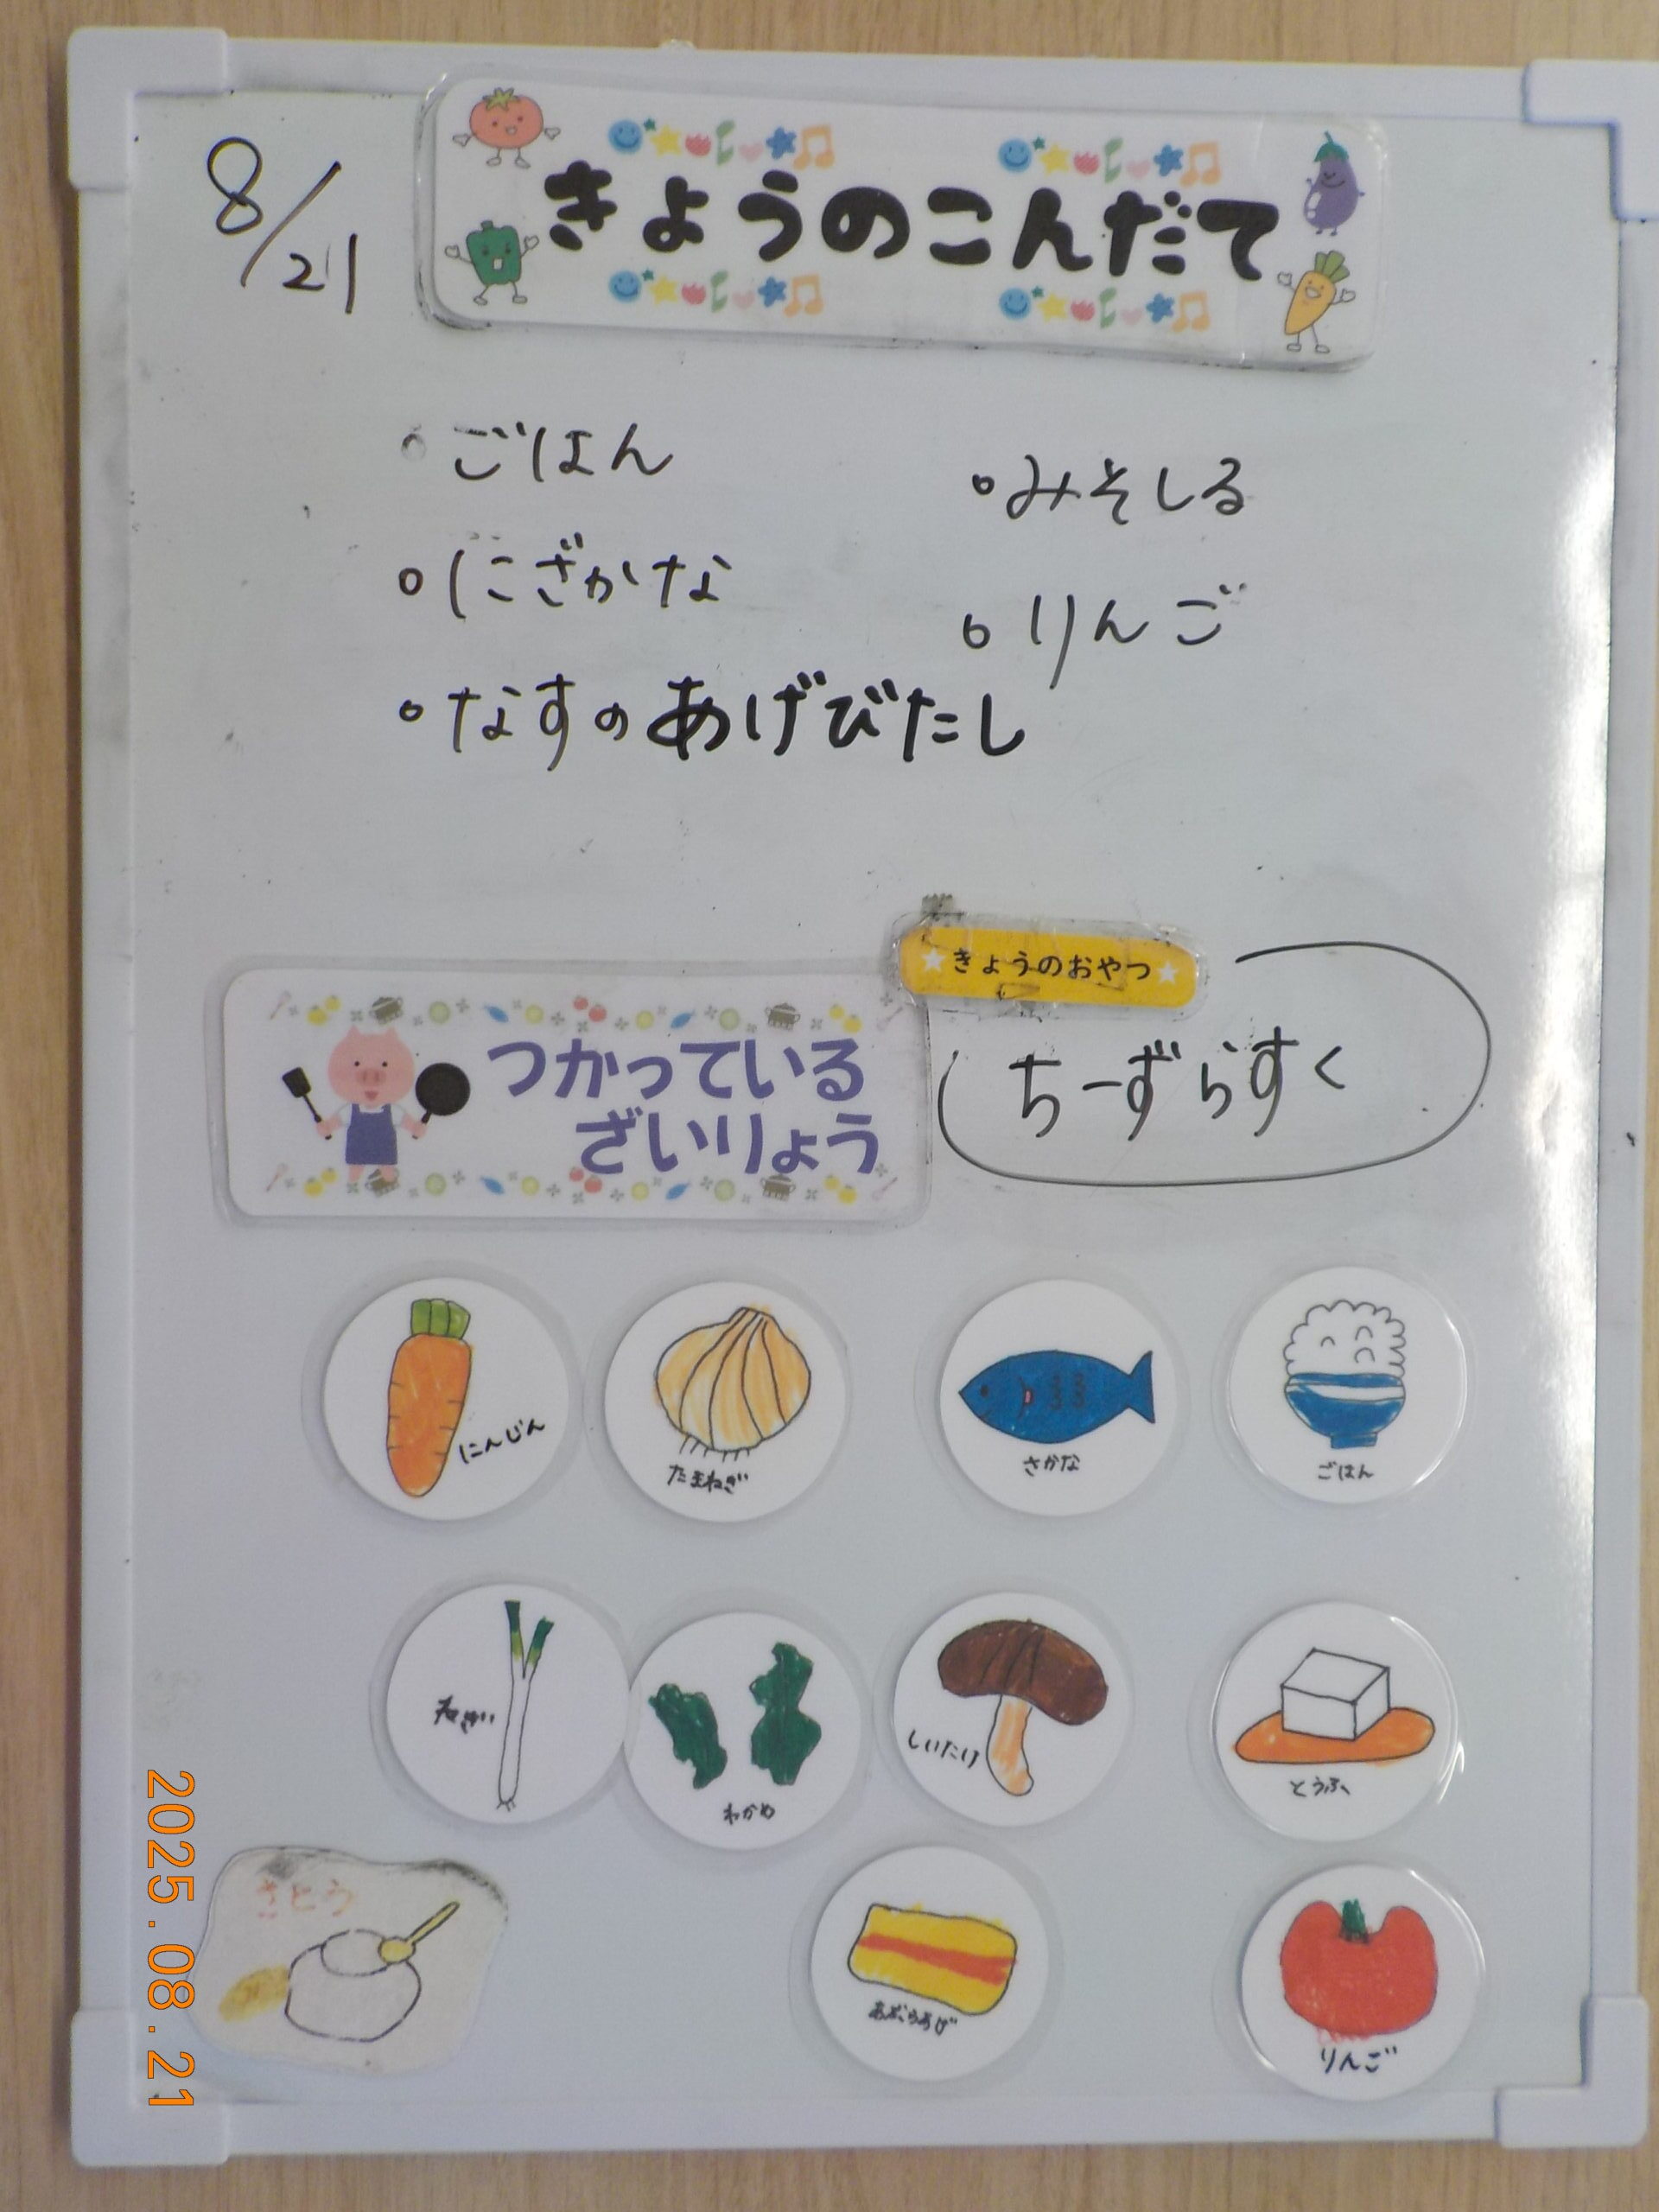 8/21
きょうのこんだて
・ごはん
・にざかな
・なすのあげびたし
・みそしる
・りんご
きょうのおやつ
ちーずらすく
つかっている
ざいりょう
にんじん
たまねぎ
さかな
ごはん
ねぎ
わかめ
しいたけ
とうふ
さとう
あぶらあげ
りんご
2025.08.21